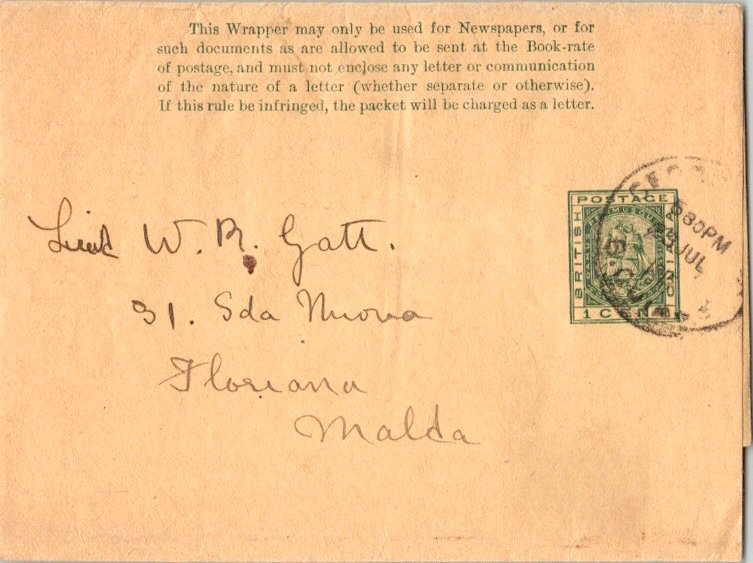 This Wrapper may only be used for Newspapers, or for
such documents as are allowed to be sent at the Book-rate
of postage, and must not enclose any letter or communication
of the nature of a letter (whether separate or otherwise).
If this rule be infringed, the packet will be charged as a letter.
POSTAGE
BRITISH
1 CENT
530PM
JUL
Lieut W. R. Gatt.
31. Sda Nuova
Floriana
Malda